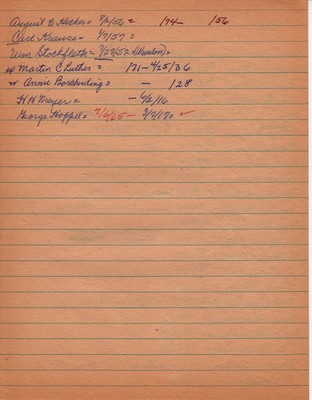 August E Hecker = 7/2/56 = 174 156
Carl Krause = 1/7/57 =
Wm Stockfleth = 7/27/52 =
Martin C Luther = 171 - 4/25/36
Annie Borcherding = - 128
H H Meyer = - 6/2/16
George Hoppel = 7/6/65 - 3/2/70 ✓